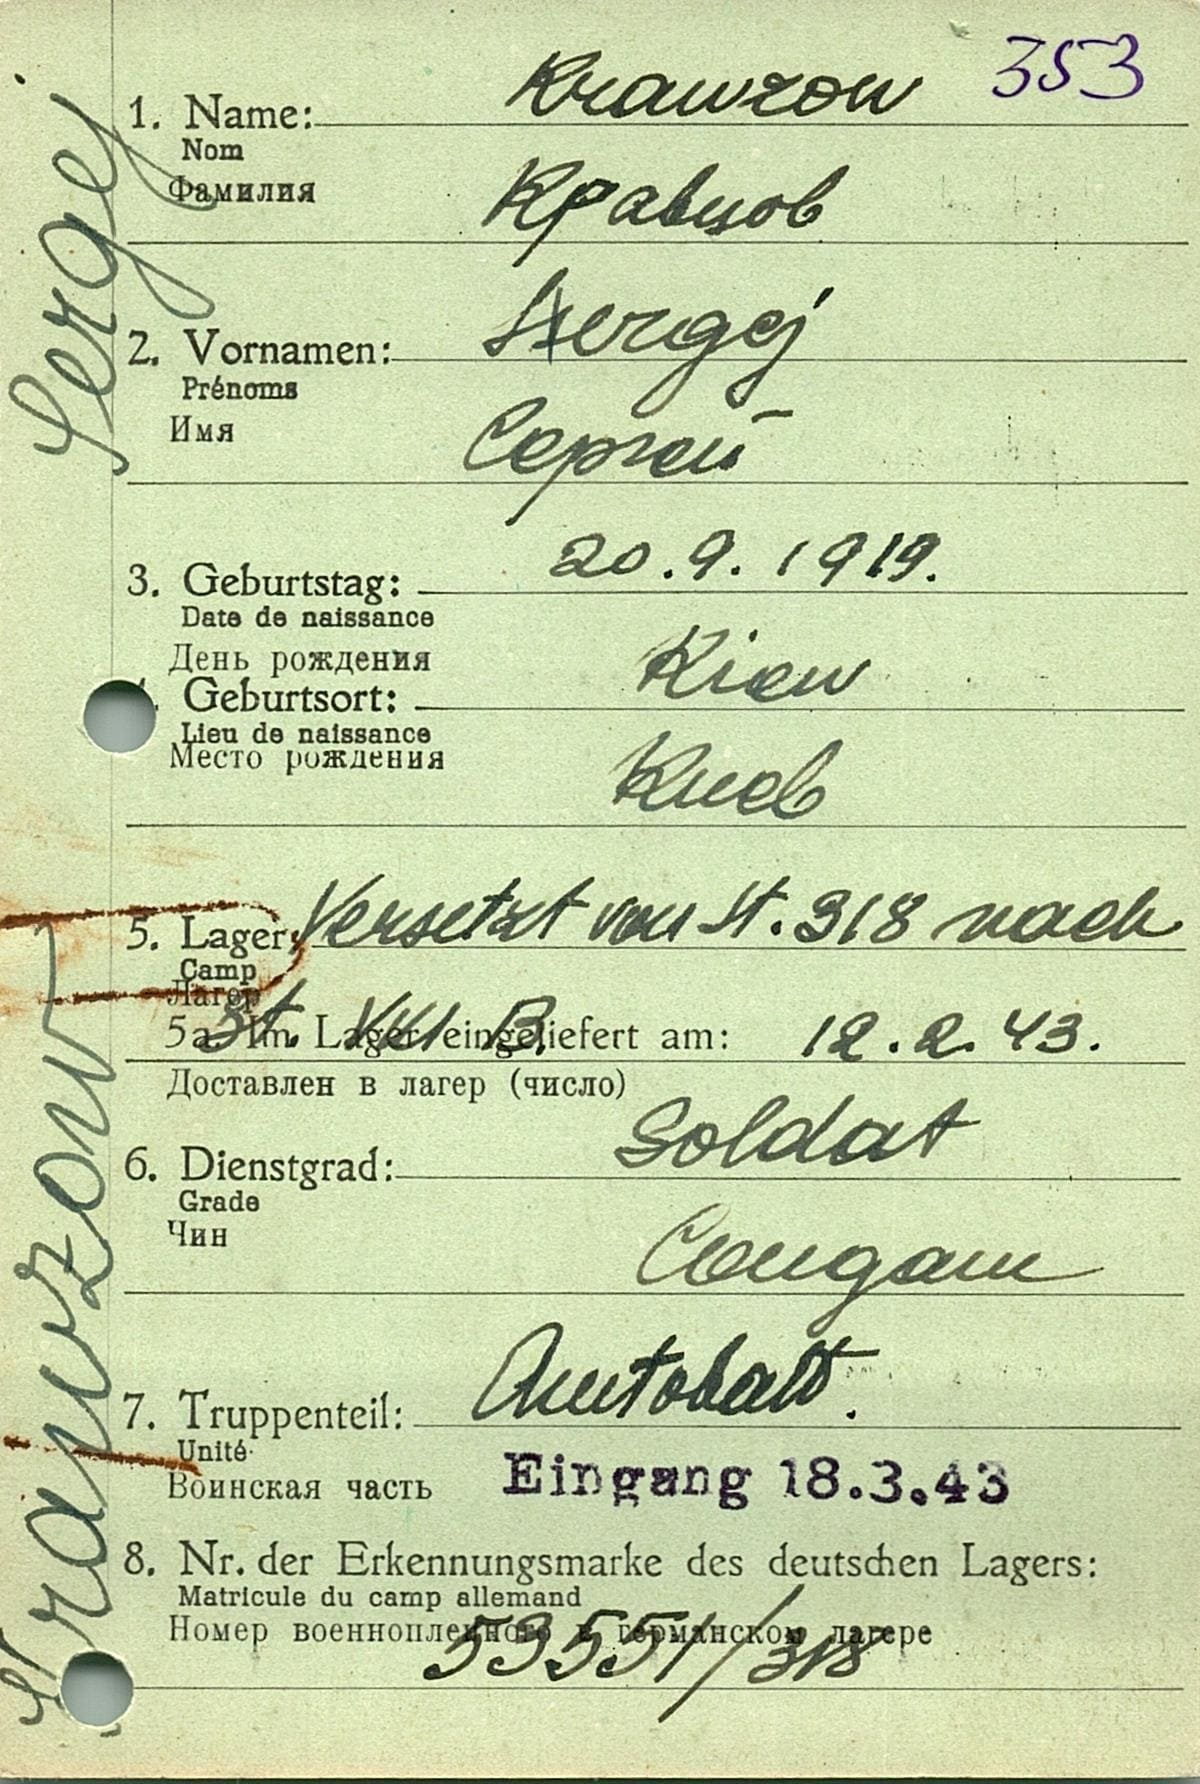 353
1. Name: Krawzow
Nom
Фамилия
Кравцов
2. Vornamen: Sergej
Prénoms
Имя
Сергей
3. Geburtstag: 20.9.1919.
Date de naissance
День рождения
Geburtsort: Kiew
Lieu de naissance
Место рождения
Киев
5. Lager: Versetzt von St. 318 nach
Camp
Лагер
St. VIII B.
5a. Im Lager eingeliefert am: 12.2.43.
Доставлен в лагер (число)
6. Dienstgrad: Soldat
Grade
Чин
Солдат
7. Truppenteil: Autobatt.
Unité
Воинская часть
Eingang 18.3.43
8. Nr. der Erkennungsmarke des deutschen Lagers:
Matricule du camp allemand
Номер военнопленного в германском лагере
53551/318
Krawzow Sergej